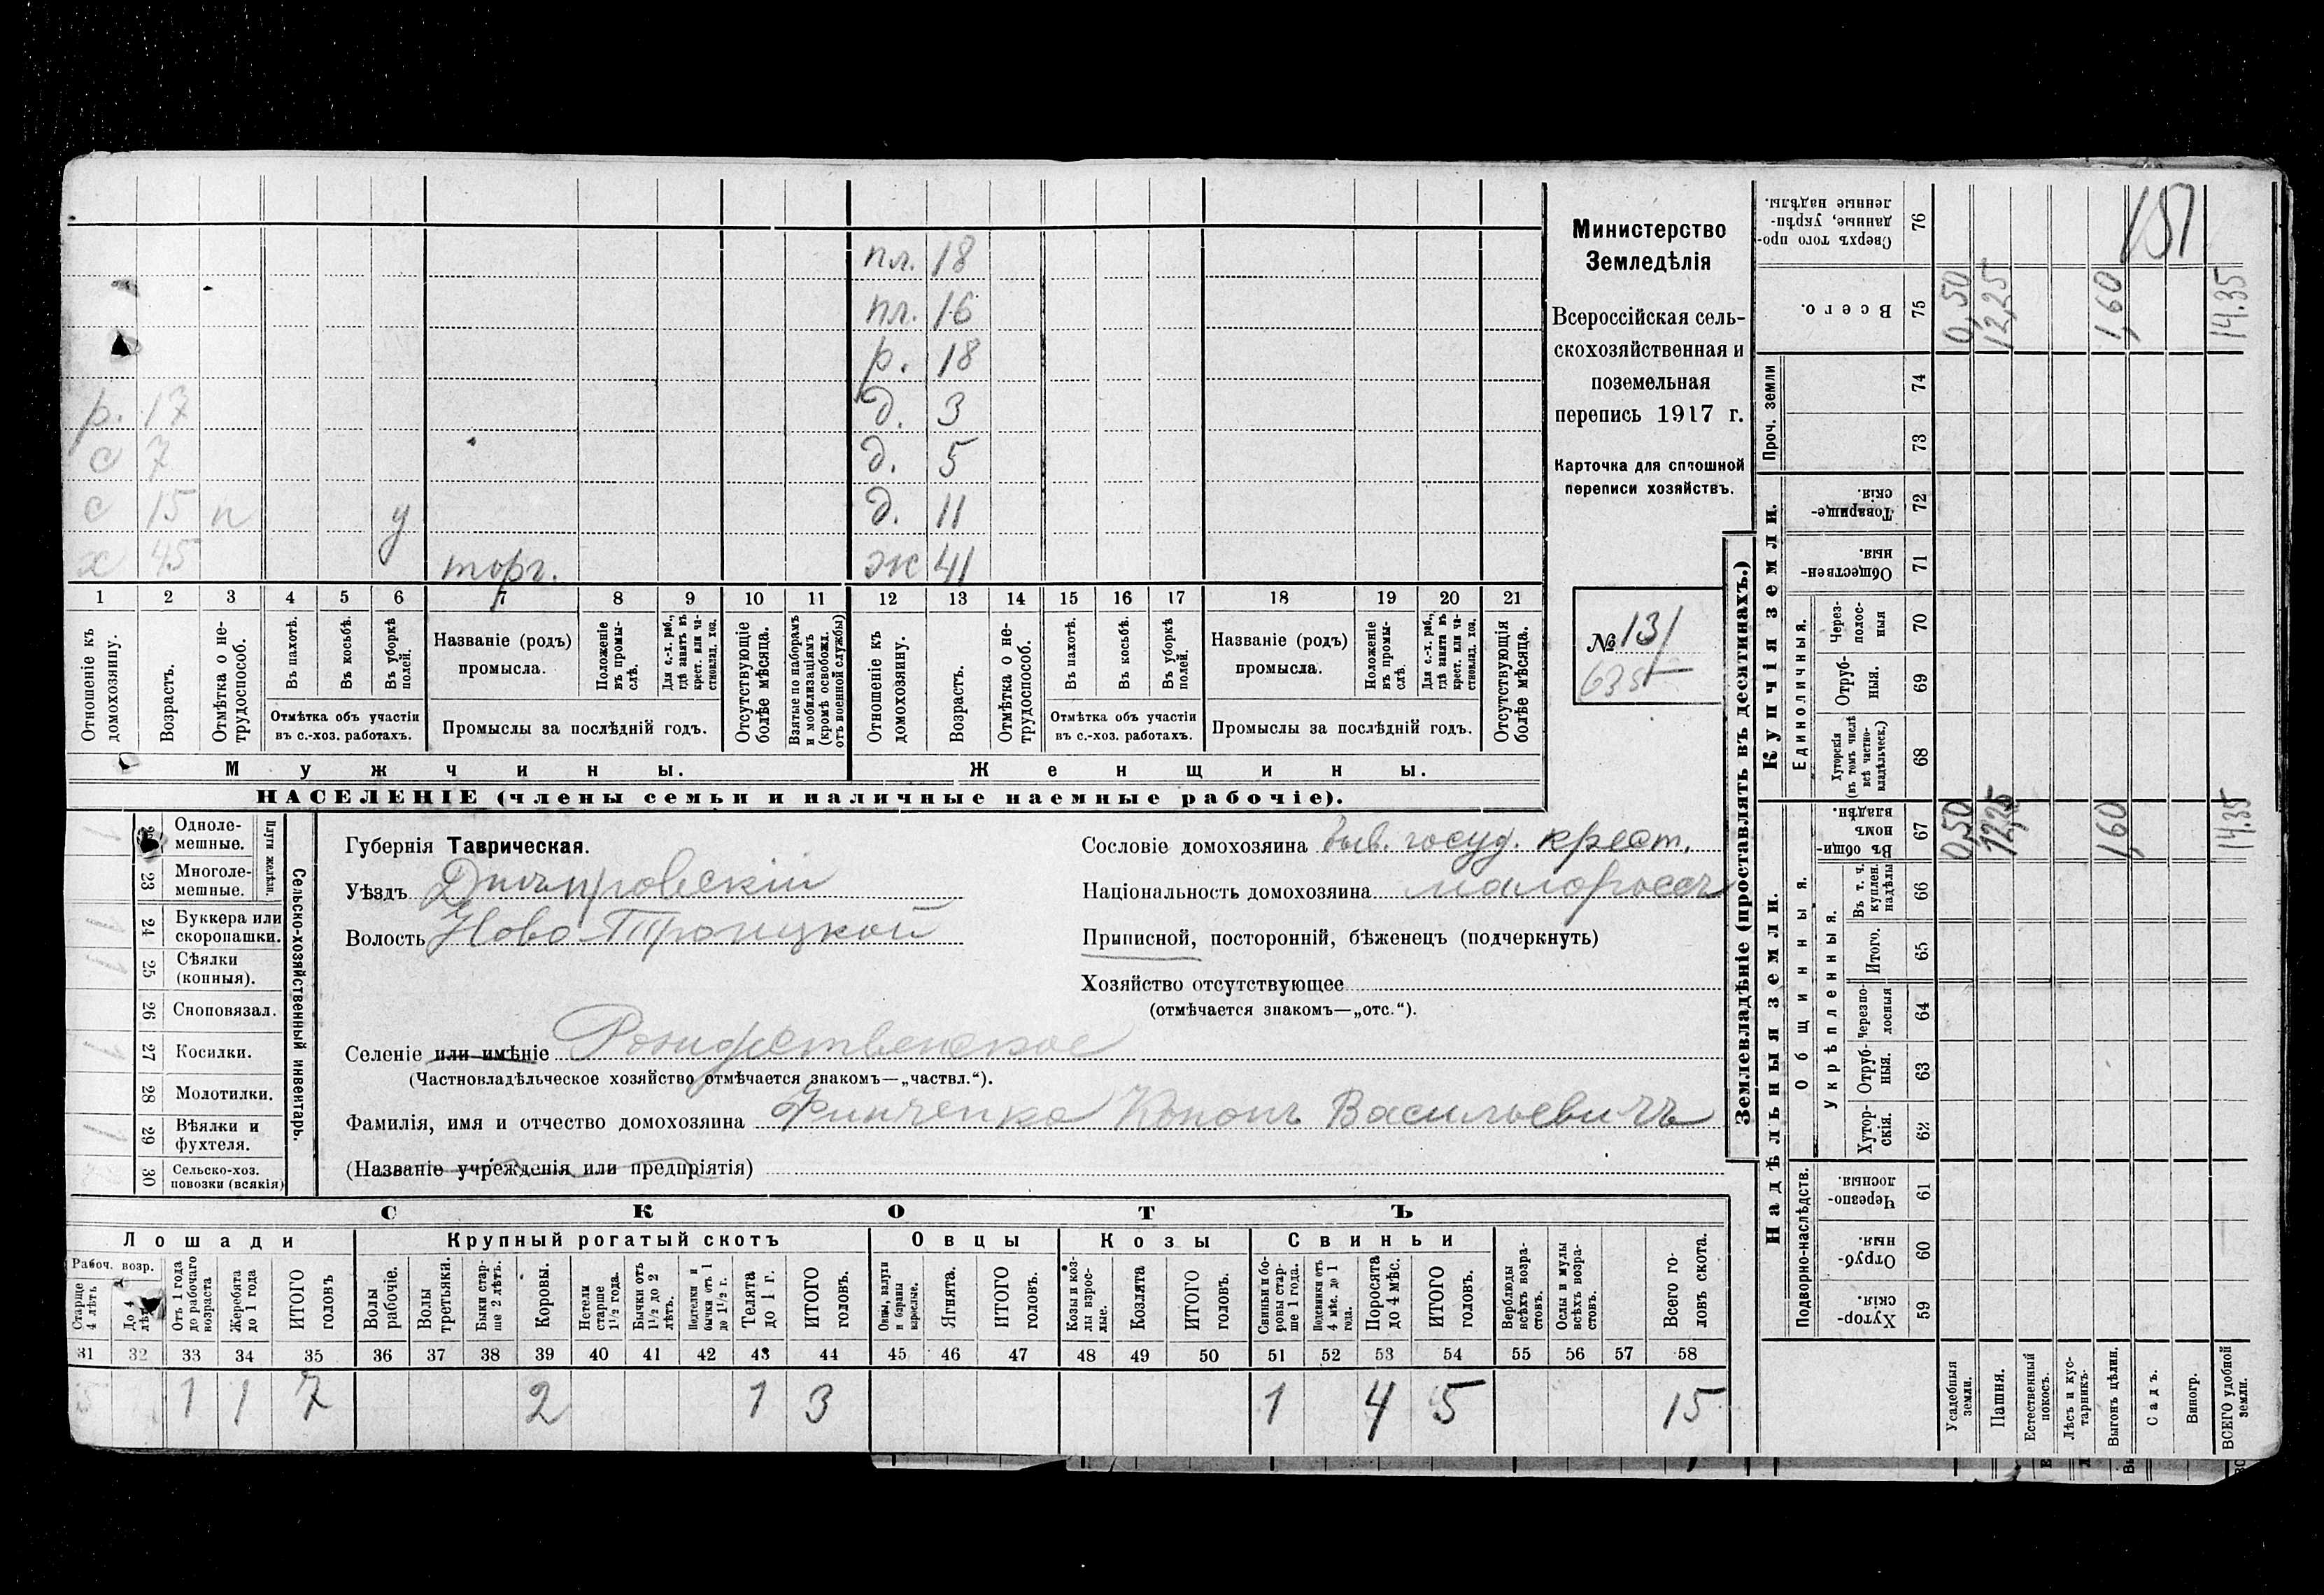 пл. 18
пл. 16
р. 18
р. 17 д. 3
с 7 д. 5
с 15 п у д. 11
х 45 торг. ж 41
1 2 3 4 5 6 7 8 9 10 11 12 13 14 15 16 17 18 19 20 21
Отношеніе къ домохозяину.
Возрастъ.
Отмѣтка о не-трудоспособ.
Въ пахотѣ.
Въ косьбѣ.
Въ уборкѣ полей.
Отмѣтка объ участіи въ с.-хоз. работахъ.
Названіе (родъ) промысла.
Положеніе въ промы-слѣ.
Для с.-х. раб., гдѣ занятъ въ крест. или ча-стновлад. хоз.
Промыслы за послѣдній годъ.
Отсутствующіе болѣе мѣсяца.
Взятые по наборамъ и мобилизаціямъ (кромѣ освобожд. отъ военной службы)
Отношеніе къ домохозяину.
Возрастъ.
Отмѣтка о не-трудоспособ.
Въ пахотѣ.
Въ косьбѣ.
Въ уборкѣ полей.
Отмѣтка объ участіи въ с.-хоз. работахъ.
Названіе (родъ) промысла.
Положеніе въ промы-слѣ.
Для с.-х. раб., гдѣ занята въ крест. или ча-стновлад. хоз.
Промыслы за послѣдній годъ.
Отсутствующія болѣе мѣсяца.
Мужчины. Женщины.
НАСЕЛЕНІЕ (члены семьи и наличные наемные рабочіе).
Министерство
Земледѣлія
Всероссійская сель-
скохозяйственная и
поземельная
перепись 1917 г.
Карточка для сплошной
переписи хозяйствъ.
№ 131
Сельско-хозяйственный инвентарь.
Плуги желѣзн.
Одноле-мешные. 1
23 Многоле-мешные.
24 Буккера или скоропашки. 1
25 Сѣялки (конныя). 1
26 Сноповязал.
27 Косилки. 1
28 Молотилки.
29 Вѣялки и фухтеля. 1
30 Сельско-хоз. повозки (всякія)
Губернія Таврическая.
Уѣздъ Днѣпровскій
Волость Ново-Троицкой
Сословіе домохозяина быв. госуд. крест.
Національность домохозяина малороссъ
Приписной, посторонній, бѣженецъ (подчеркнуть)
Хозяйство отсутствующее
(отмѣчается знакомъ—„отс.“).
Селеніе или имѣніе Рождественское
(Частновладѣльческое хозяйство отмѣчается знакомъ—„частвл.“).
Фамилія, имя и отчество домохозяина Кононъ Васильевичъ
(Названіе учрежденія или предпріятія)
СКОТЪ
Лошади Крупный рогатый скотъ Овцы Козы Свиньи
Рабоч. возр.
Старше 4 лѣтъ
До 4 лѣтъ
Отъ 1 года до рабочаго возраста
Жеребята до 1 года
ИТОГО головъ
Волы рабочіе.
Волы третьяки.
Быки стар-ше 2 лѣтъ.
Коровы.
Нетели старше 1½ года.
Бычки отъ 1½ до 2 лѣтъ.
Подтелки и бычки отъ 1 до 1½ г.
Телята до 1 г.
ИТОГО головъ.
Овцы, валухи и бараны взрослые.
Ягнята.
ИТОГО головъ.
Козы и коз-лы взрос-лые.
Козлята
ИТОГО головъ.
Свиньи и бо-ровы стар-ше 1 года.
Подсвинки отъ 4 мѣс. до 1 года.
Поросята до 4 мѣс.
ИТОГО головъ.
Верблюды всѣхъ возра-стовъ.
Ослы и мулы всѣхъ возра-стовъ.
Всего го-ловъ скота.
31 32 33 34 35 36 37 38 39 40 41 42 43 44 45 46 47 48 49 50 51 52 53 54 55 56 57 58
5 1 1 7 2 1 3 1 4 5 15
Землевладѣніе (проставлять въ десятинахъ.)
Надѣльныя земли. Купчія земли. Проч. земли
Подворно-наслѣдств. Общинныя. Укрѣпленныя. Единоличныя.
Сверхъ того про-данные, укрѣп-ленные надѣлы. 76 151
Всего. 75 0,50 12,25 1,60 14.35
74
73
Товарище-скія. 72
Обществен-ныя. 71
Через-полос-ныя 70
Отруб-ныя. 69
Хуторскія (въ томъ числѣ всѣ частно-владѣльческ.) 68
Въ общи-номъ владѣн. 67 0,50 12,25 1,60 14.35
Въ т. ч. куплен. надѣлы 66
Итого. 65
Черезпо-лосныя 64
Отруб-ныя. 63
Хутор-скія. 62
Черезпо-лосныя. 61
Отруб-ныя. 60
Хутор-скія. 59
Усадебныя земли.
Пашня.
Естественный покосъ.
Лѣсъ и кус-тарникъ.
Выгонъ цѣлин.
Садъ.
Виногр.
ВСЕГО удобной земли.